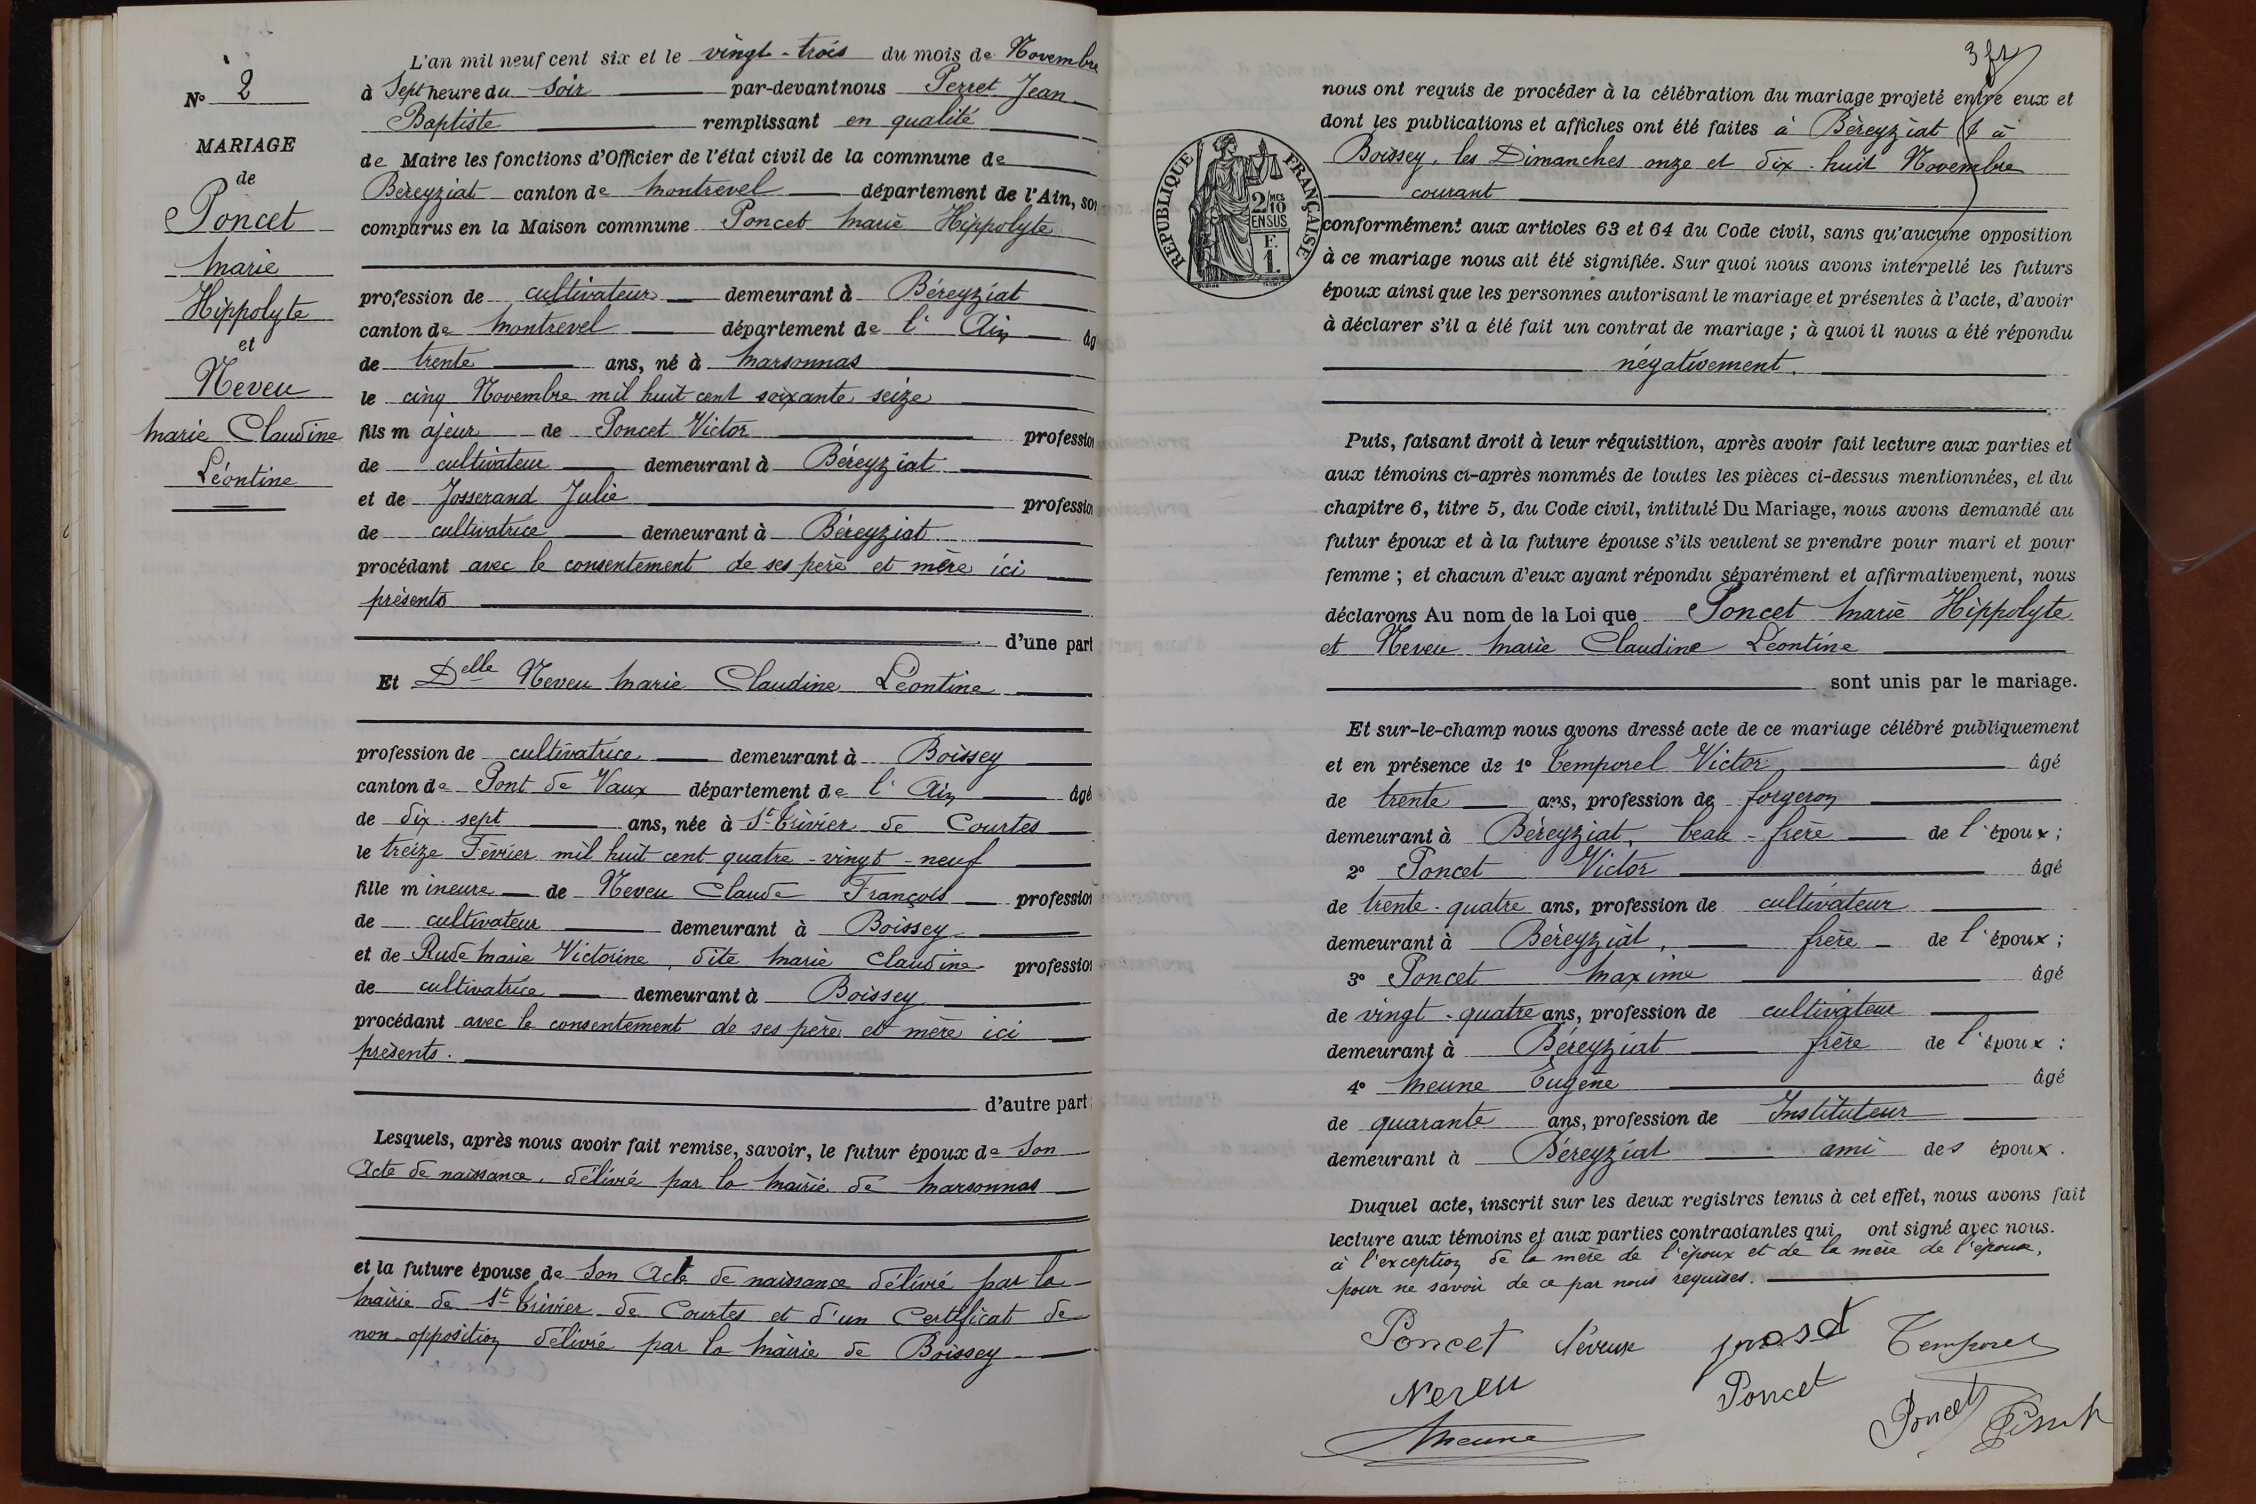 N° 2
MARIAGE
de
Poncet
Marie
Hippolyte
et
Neveu
Marie Claudine
Léontine
L'an mil neuf cent six et le vingt-trois du mois de Novembre
à Sept heure du Soir par-devant nous Perret Jean
Baptiste remplissant en qualité
de Maire les fonctions d'Officier de l'état civil de la commune de
Béreyziat canton de Montrevel département de l'Ain, son
comparus en la Maison commune Poncet Marie Hippolyte
profession de cultivateur demeurant à Béreyziat
canton de Montrevel département de l'Ain âg
de trente ans, né à Marsonnas
le cinq Novembre mil huit cent soixante seize
fils majeur de Poncet Victor profession
de cultivateur demeurant à Béreyziat
et de Josserand Julie profession
de cultivatrice demeurant à Béreyziat
procédant avec le consentement de ses père et mère ici
présents
d'une part
Et Delle Neveu Marie Claudine Léontine
profession de cultivatrice demeurant à Boissey
canton de Pont de Vaux département de l'Ain âgé
de dix-sept ans, née à St Trivier de Courtes
le treize Février mil huit cent quatre-vingt-neuf
fille mineure de Neveu Claude François profession
de cultivateur demeurant à Boissey
et de Rude Marie Victorine, dite Marie Claudine profession
de cultivatrice demeurant à Boissey
procédant avec le consentement de ses père et mère ici
présents.
d'autre part
Lesquels, après nous avoir fait remise, savoir, le futur époux de Son
Acte de naissance, délivré par la Mairie de Marsonnas
et la future épouse de Son Acte de naissance délivré par la
Mairie de St Trivier de Courtes et d'un Certificat de
non-opposition délivré par la Mairie de Boissey
3 fr
RÉPUBLIQUE FRANÇAISE
2/10
EN SUS
F.
1.
nous ont requis de procéder à la célébration du mariage projeté entre eux et
dont les publications et affiches ont été faites à Béreyziat & à
Boissey, les Dimanches onze et dix-huit Novembre
courant
conformément aux articles 63 et 64 du Code civil, sans qu'aucune opposition
à ce mariage nous ait été signifiée. Sur quoi nous avons interpellé les futurs
époux ainsi que les personnes autorisant le mariage et présentes à l'acte, d'avoir
à déclarer s'il a été fait un contrat de mariage ; à quoi il nous a été répondu
négativement.
Puis, faisant droit à leur réquisition, après avoir fait lecture aux parties et
aux témoins ci-après nommés de toutes les pièces ci-dessus mentionnées, et du
chapitre 6, titre 5, du Code civil, intitulé Du Mariage, nous avons demandé au
futur époux et à la future épouse s'ils veulent se prendre pour mari et pour
femme ; et chacun d'eux ayant répondu séparément et affirmativement, nous
déclarons Au nom de la Loi que Poncet Marie Hippolyte
et Neveu Marie Claudine Léontine
sont unis par le mariage.
Et sur-le-champ nous avons dressé acte de ce mariage célébré publiquement
et en présence de 1° Temporel Victor âgé
de trente ans, profession de forgeron
demeurant à Béreyziat, beau-frère de l'époux ;
2° Poncet Victor âgé
de trente-quatre ans, profession de cultivateur
demeurant à Béreyziat, frère de l'époux ;
3° Poncet Maxime âgé
de vingt-quatre ans, profession de cultivateur
demeurant à Béreyziat frère de l'époux :
4° Meune Eugène âgé
de quarante ans, profession de Instituteur
demeurant à Béreyziat ami des époux.
Duquel acte, inscrit sur les deux registres tenus à cet effet, nous avons fait
lecture aux témoins et aux parties contractantes qui ont signé avec nous.
à l'exception de la mère de l'époux et de la mère de l'épouse,
pour ne savoir de ce par nous requises.
Poncet Neveux Temporel
Neveu Poncet Poncet Perret
Meune